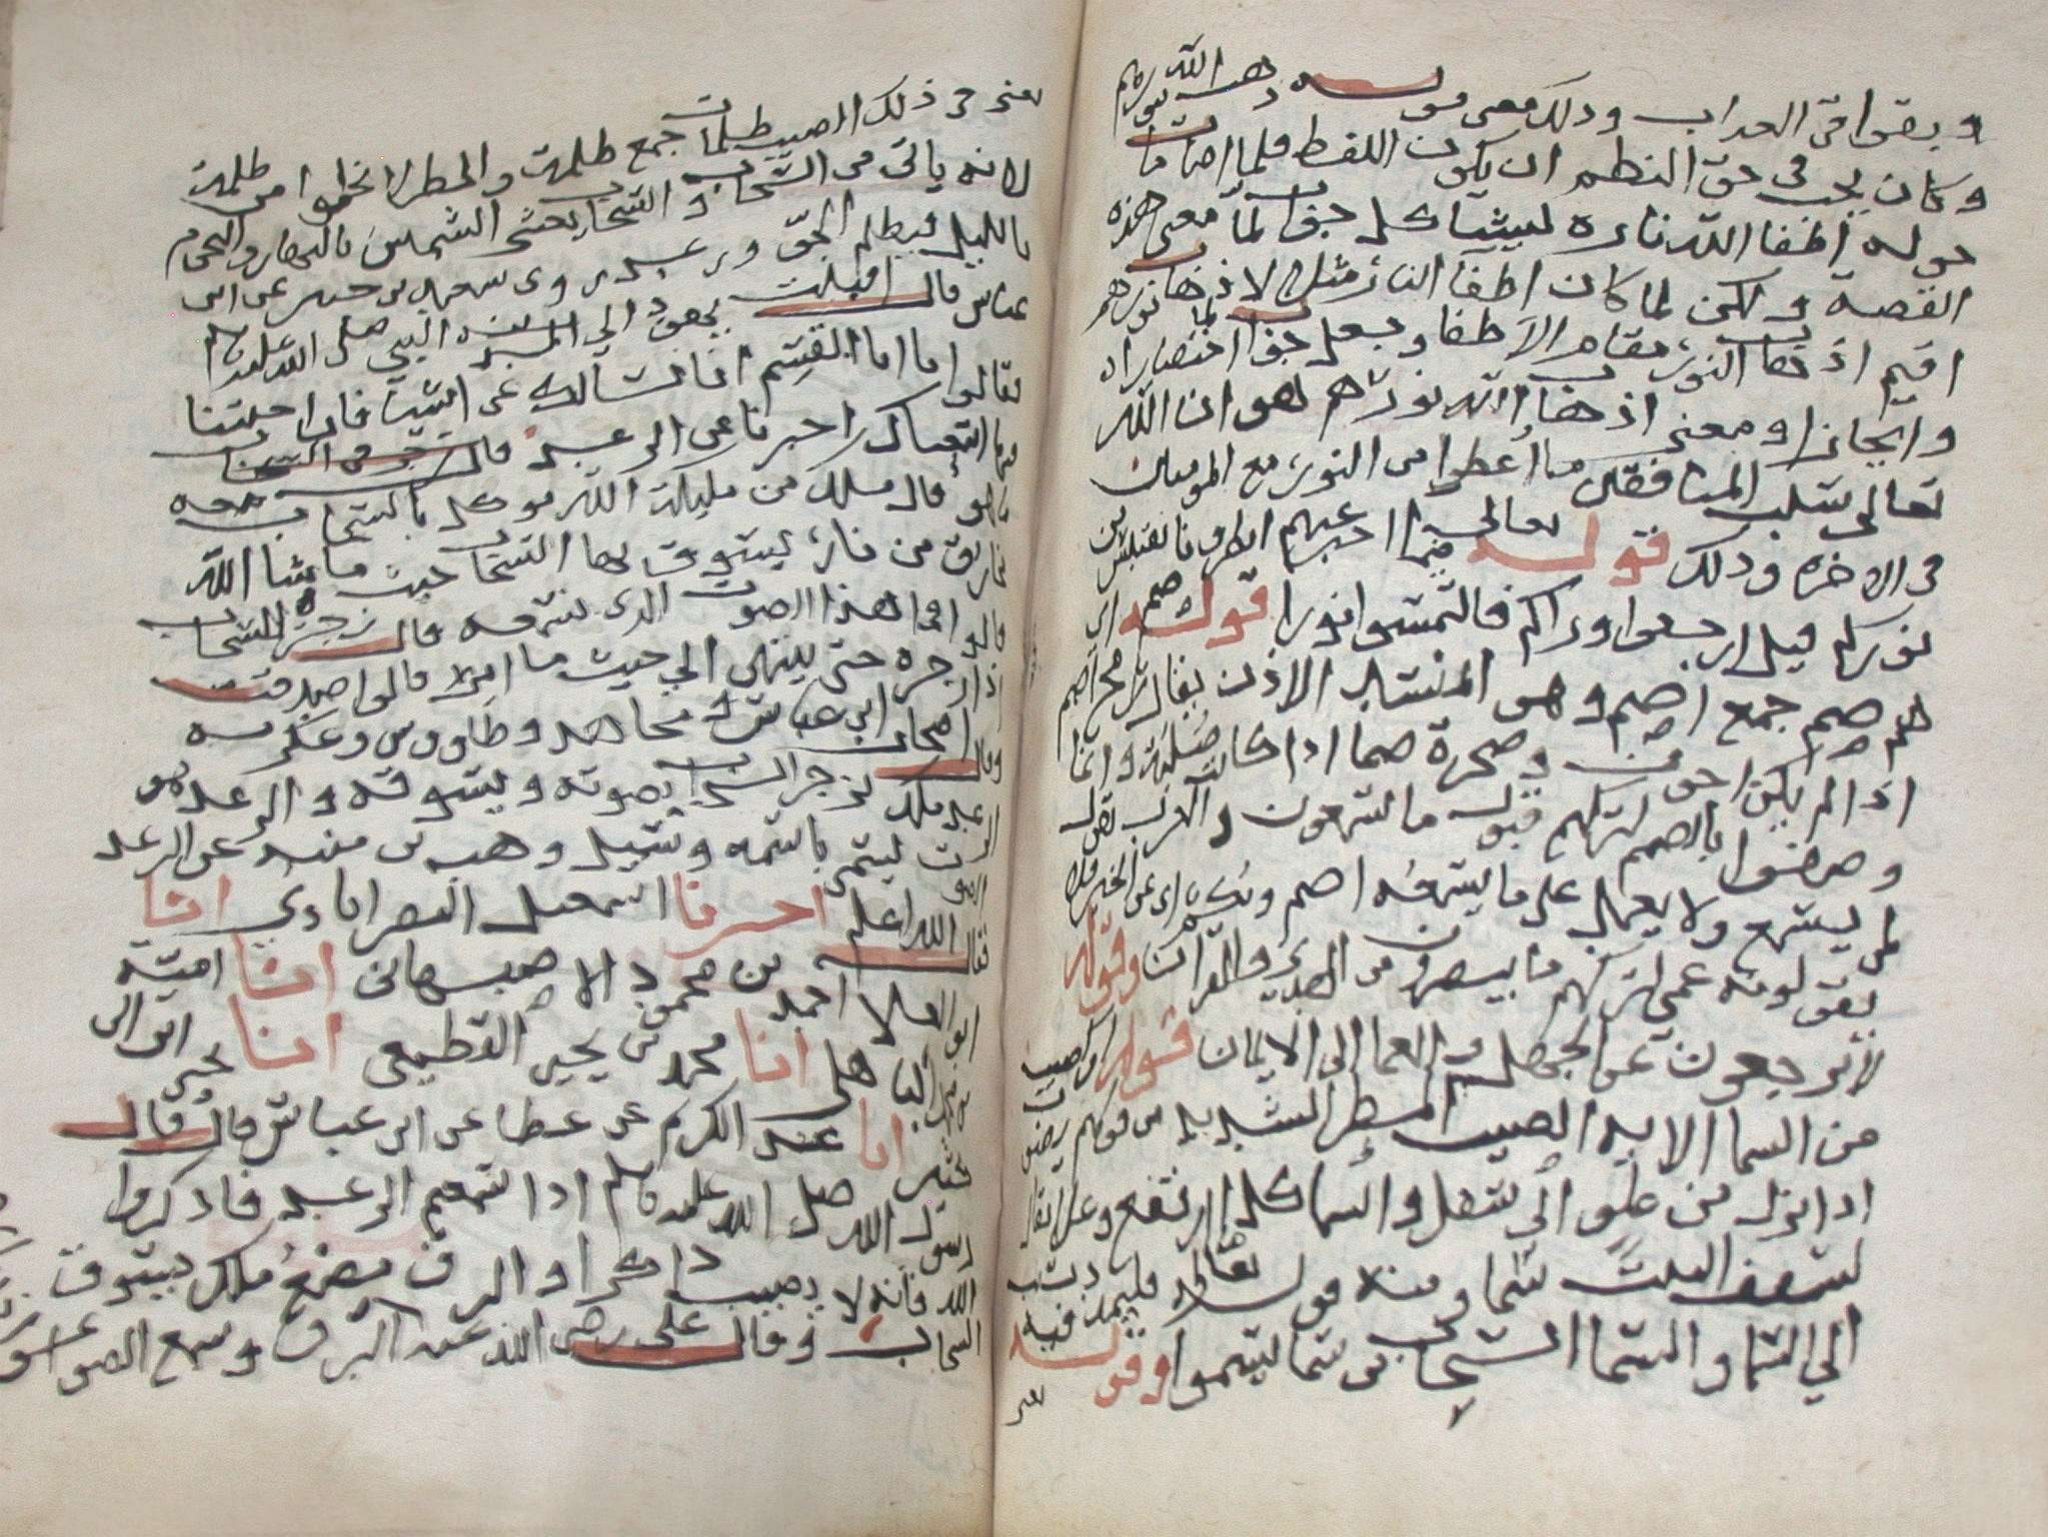 وبقوا في العداب ودلك معنى قوله ذهب الله بنورهم
وكان يجب في حق النظم ان يكون اللفظ فلما اضاءت ما
حوله اطفا الله ناره ليشاكل جواب لما معنى هذه
القصة ولكن لما كان اطفا النار مثلا لاذهاب نورهم
اقيم اذهاب النور مقام الاطفا وجعل جواب لما اختصارا
وايجازا ومعنى اذهاب الله نورهم هو ان الله
تعالى يسلب المنافقين ما اعطوا من النور مع المومنين
في الاخره ودلك قوله تعالى فيما اخبر عنهم انظرونا نقتبس من
نوركم قيل ارجعوا وراكم فالتمسوا نورا قوله صم اي
هم صم جمع اصم وهو المنسد الاذن يقال رمح اصم
اذا لم يكن اجوف وصخرة صما اذا كانت صلبة وانما
وصفوا بالصمم لتركهم قبول ما يسمعون والعرب تقول
لمن يسمع ولا يعمل على ما يسمعه اصم وبكم اي عن الخير فلا
يقولونه عمي لتركهم ما يبصرون من الهدي والقران وقوله
لا يرجعون عن الجهل والعما الى الايمان قوله او كصيب
من السما الايه الصيب المطر الشديد من قولهم
اذا نزل من علو الى سفل والسما كل ما ارتفع وعلا يقال
لسقف البيت سما ومنه قوله تعالى فليمدد بسبب
الى السما والسما السحاب من سما يسموا وقوله فيه
يعني في ذلك الصيب ظلمات جمع ظلمة والمطر لا يخلوا من ظلمة
لانه ياتي من السحاب والسحاب يغشى الشمس بالنهار والنجوم
بالليل فيظلم الجو ورعد روى سعيد بن جبير عن ابن
عباس قال اقبلت يهود الى النبي صلى الله عليه وسلم
فقالوا يا ابا القسم انا نسالك عن اشيا فان اجبتنا
فيها اتبعناك اخبرنا عن الرعد
ما هو قال ملك من مليكة الله موكل بالسحاب معه
مخاريق من نار يسوق بها السحاب حيث ما شا الله
قالوا فما هذا الصوت الذي نسمعه قال زجره للسحاب
اذا زجره حتى ينتهى الى حيث ما امر قالوا صدقت
وقال اصحاب ابن عباس مجاهد وطاووس وعكرمه
الرعد ملك يزجر السحاب بصوته ويسوقه والرعد هو
الصوت ليسمى باسمه وسيل وهب بن منبه عن الرعد
فقال الله اعلم اخبرنا اسمعيل النصراباذي انا
ابو العلا احمد بن محمود الاصبهاني انا امية
بن محمد الباهلي انا محمد بن يحيى القطيعي انا يحيى ابن ابي
كثير انا عبد الكريم عن عطا عن ابن عباس قال قال
رسول الله صلى الله عليه وسلم اذا سمعتم الرعد فاذكروا
الله فانه لا يصيب ذاكرا والبرق مصع ملك يسوق
السحاب وقال علي رضي الله عنه البرق